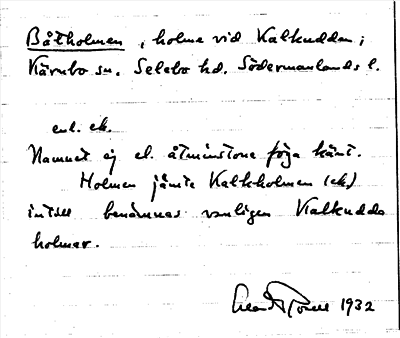 Båtholmen, holme vid Kalkudden;
Kärnbo sn. Selebo hd. Södermanlands l.
enl. ek.
Namnet ej el. åtminstone föga känt.
Holmen jämte Kalkholmen (ek)
intill benämnas vanligen Kalkudds
holmar.
1932